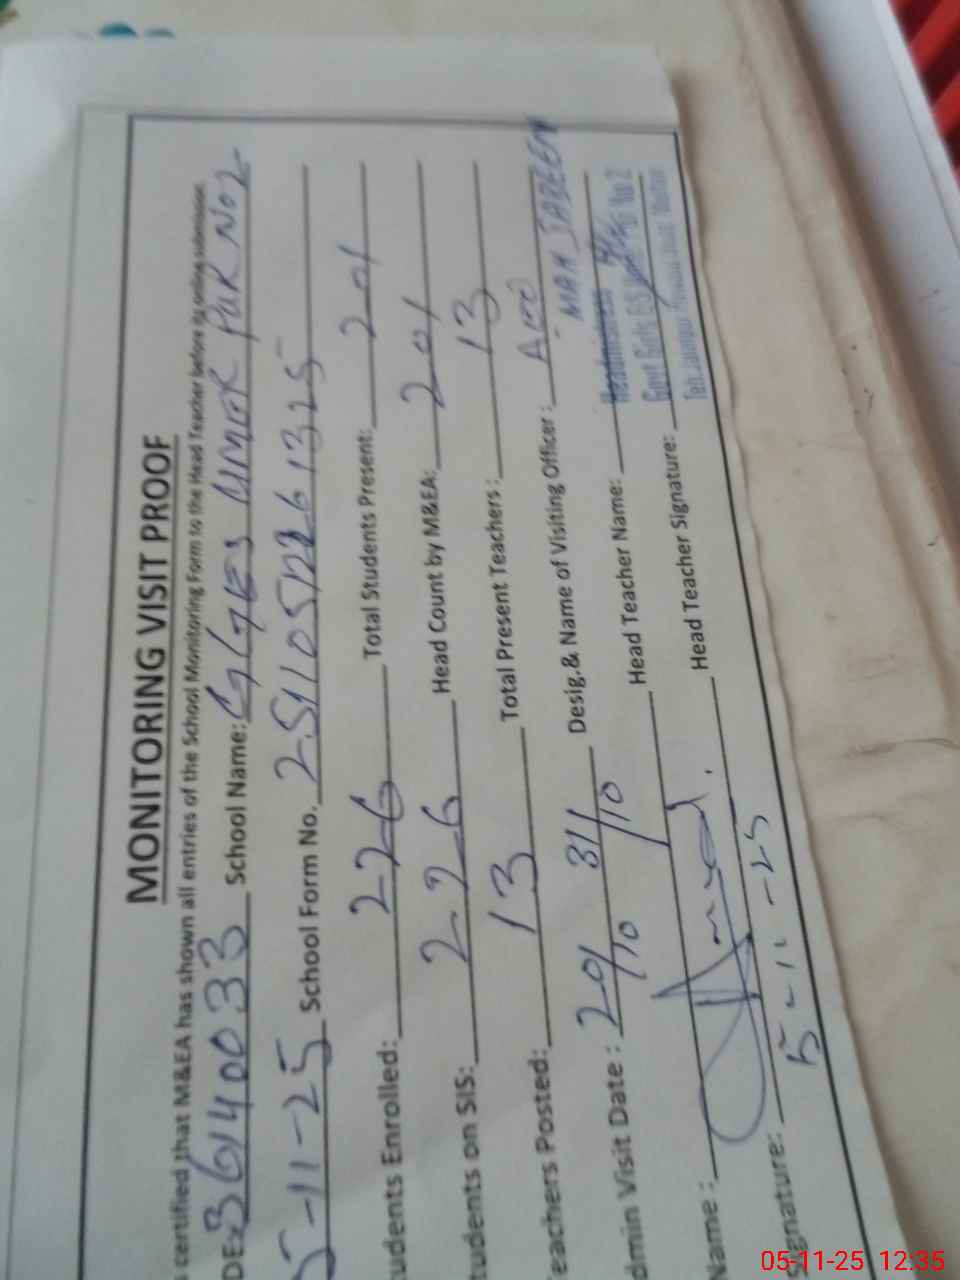 MONITORING VISIT PROOF
certified that M&EA has shown all entries of the School Monitoring Form to the Head Teacher before its online submission
DE: 36140033 School Name: GGES UMER PUR NO2
5-11-25 School Form No. 2511051226 1325
tudents Enrolled: 226 Total Students Present: 201
tudents on SIS: 226 Head Count by M&EA: 201
Teachers Posted: 13 Total Present Teachers: 13
dmin Visit Date: 20/10 31/10 Desig.& Name of Visiting Officer: AEO
MAM SABEEN
Name: Head Teacher Name: Headmistress
Signature: Head Teacher Signature: Govt Girls E/S No 2
5-11-25
05-11-25 12:35